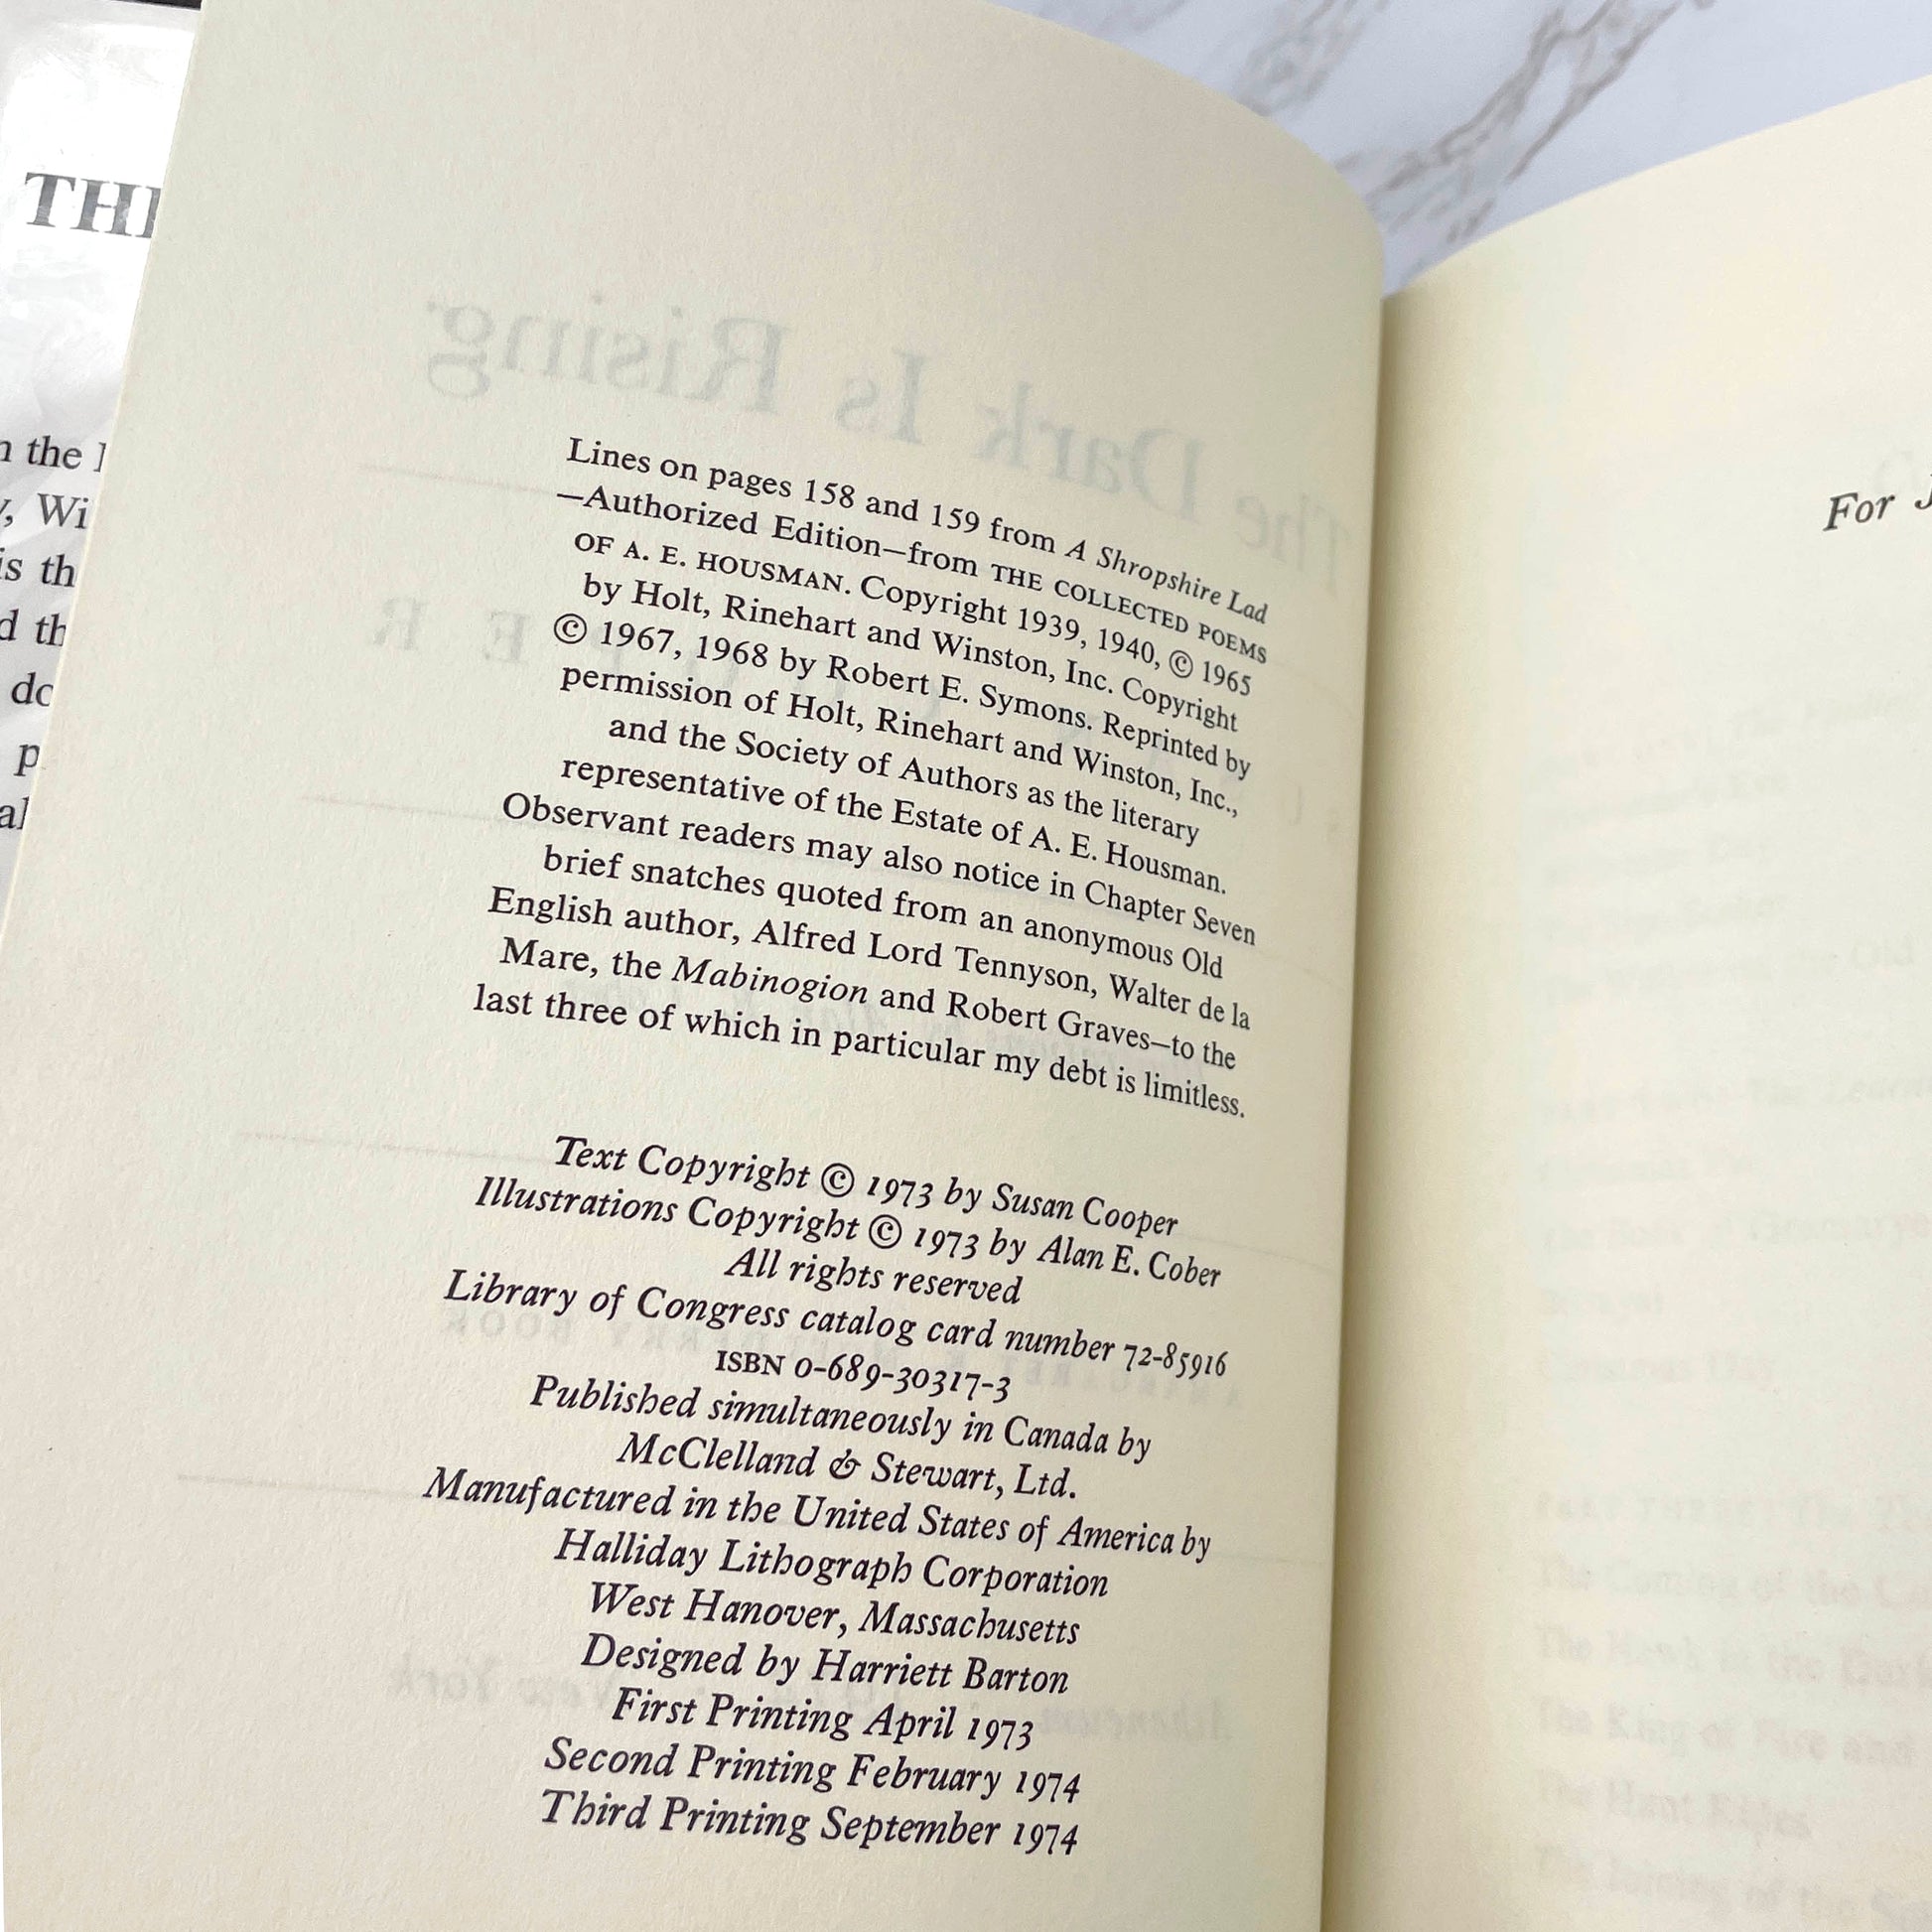 THE
n the
Wi
is th
d th
do
p
al
The Dark Is Rising
Lines on pages 158 and 159 from A Shropshire Lad
—Authorized Edition—from THE COLLECTED POEMS
OF A. E. HOUSMAN. Copyright 1939, 1940, © 1965
by Holt, Rinehart and Winston, Inc. Copyright
© 1967, 1968 by Robert E. Symons. Reprinted by
permission of Holt, Rinehart and Winston, Inc.,
and the Society of Authors as the literary
representative of the Estate of A. E. Housman.
Observant readers may also notice in Chapter Seven
brief snatches quoted from an anonymous Old
English author, Alfred Lord Tennyson, Walter de la
Mare, the Mabinogion and Robert Graves—to the
last three of which in particular my debt is limitless.
Text Copyright © 1973 by Susan Cooper
Illustrations Copyright © 1973 by Alan E. Cober
All rights reserved
Library of Congress catalog card number 72-85916
ISBN 0-689-30317-3
Published simultaneously in Canada by
McClelland & Stewart, Ltd.
Manufactured in the United States of America by
Halliday Lithograph Corporation
West Hanover, Massachusetts
Designed by Harriett Barton
First Printing April 1973
Second Printing February 1974
Third Printing September 1974
For